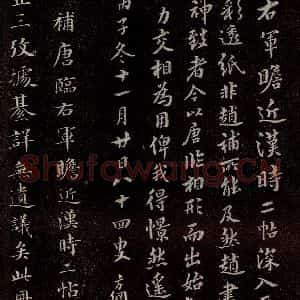 右軍瞻近漢時二帖深入
彩透紙非趙補不能及然趙書
神致者今以唐非相形而出始
力交相為用俾我得憬然遙
丙子冬十一月廿日八十四叟
補唐臨右軍瞻近漢時二帖
三攷據綦詳無遺議矣此
Shufawang.CN